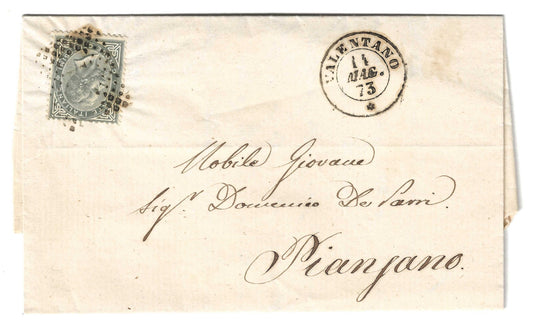 VALENTANO
14
MAG.
73
Nobile Giovane
Sigr. Domenico De Parri.
Pianzano.